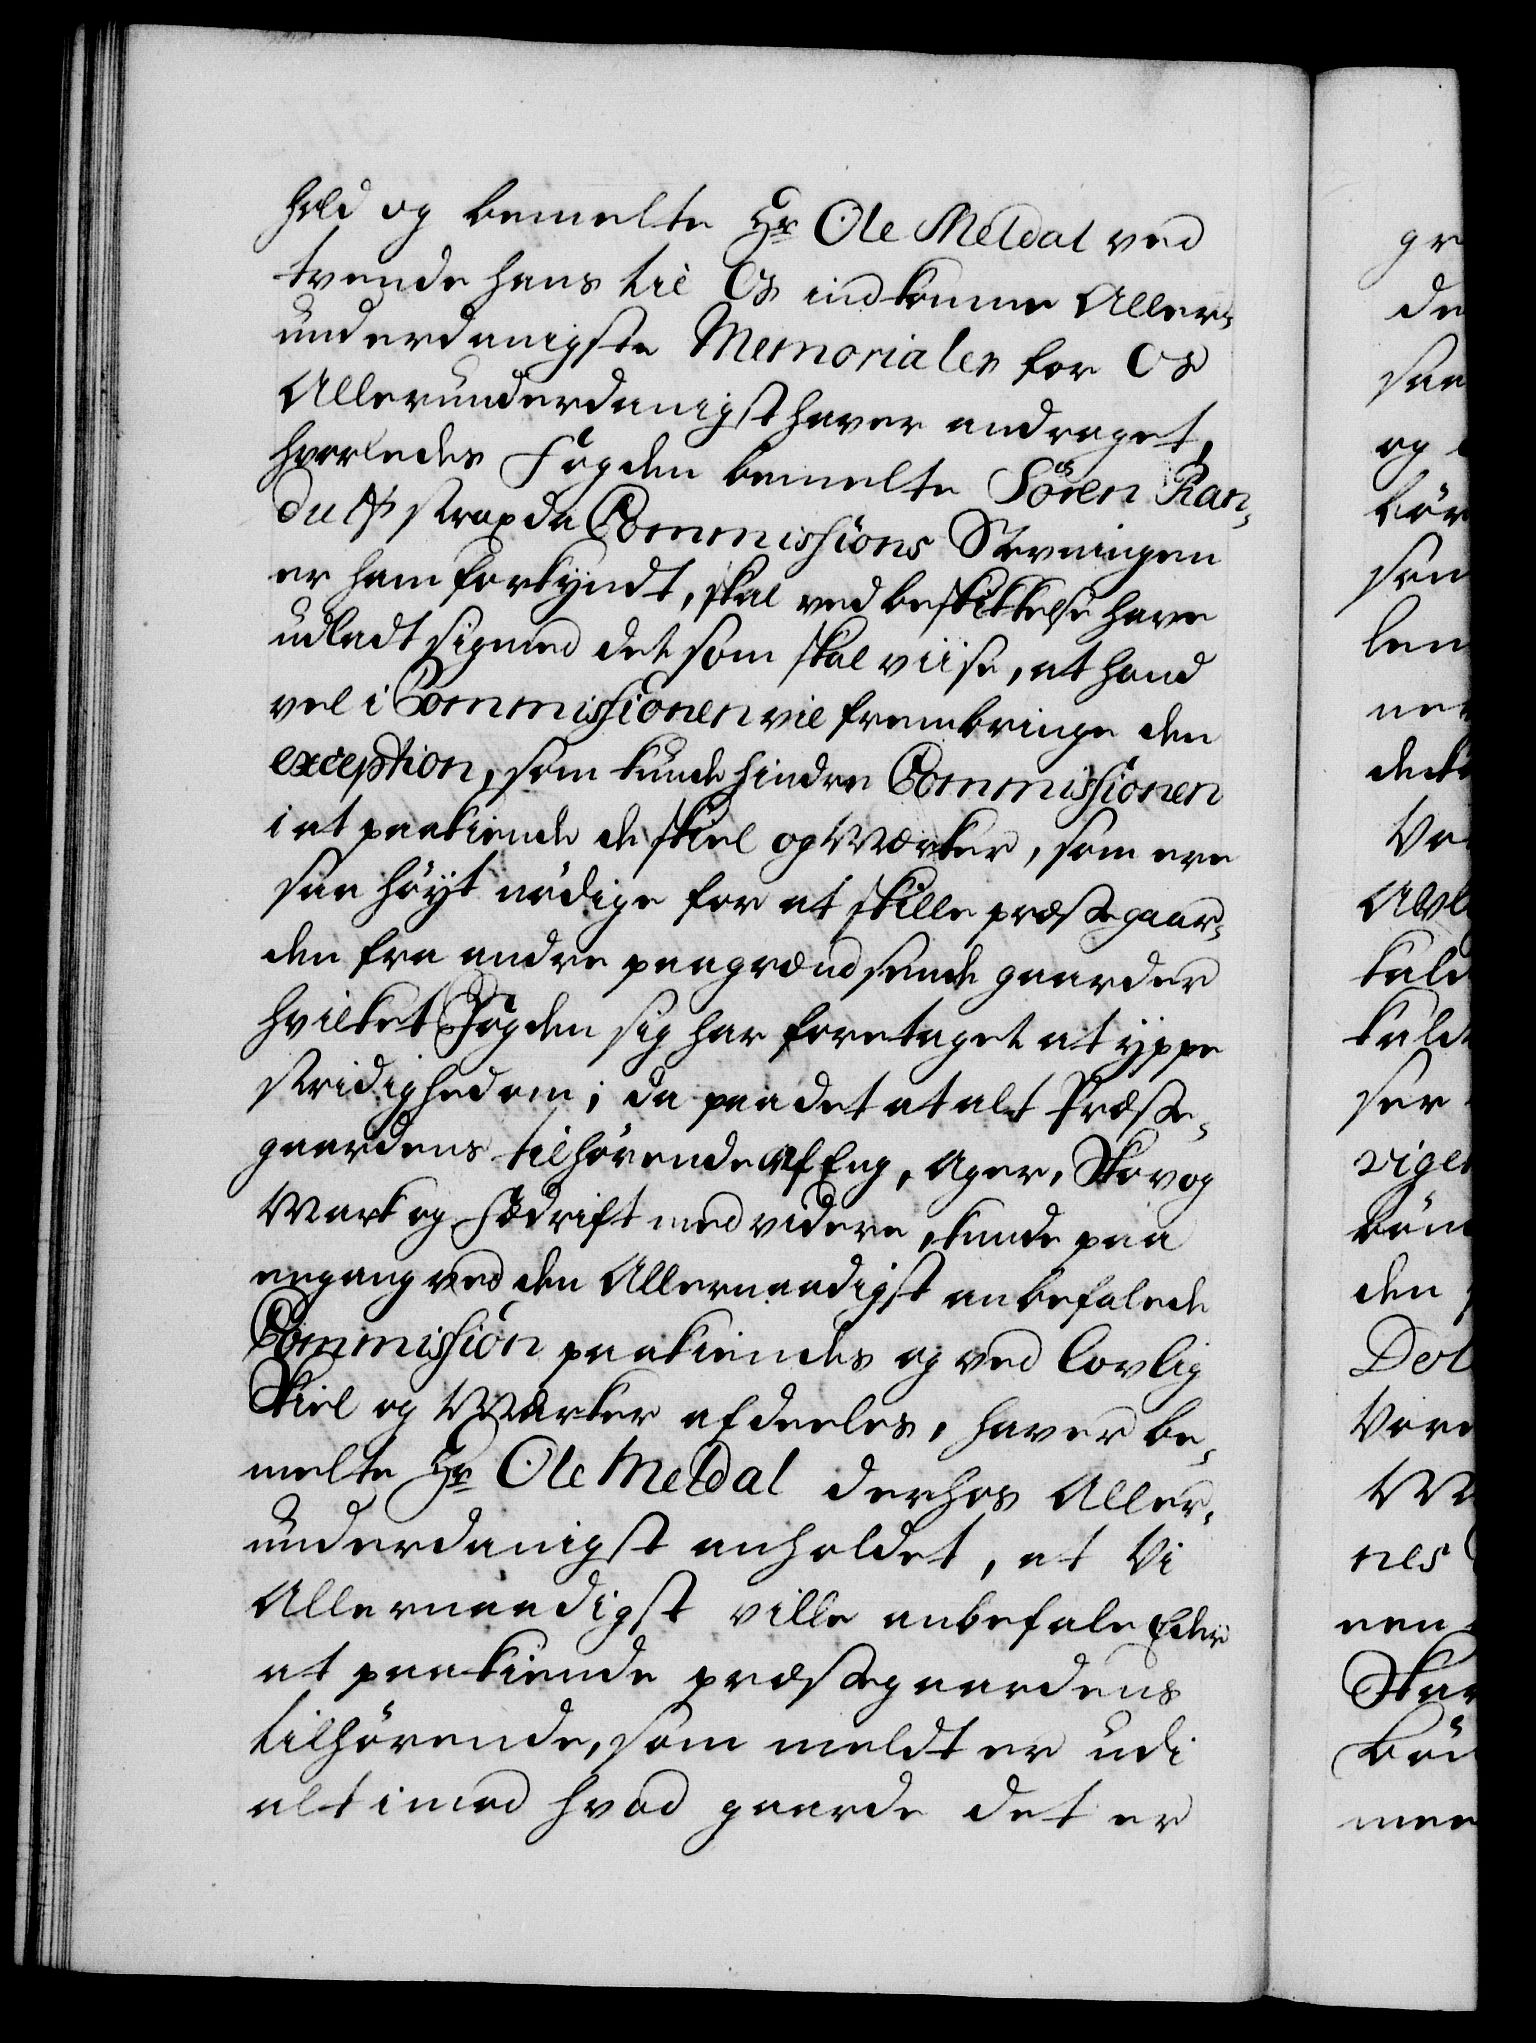 hold og bemelte Hr Ole Meldal ved
tvende hans til Os indkomne Aller-
underdanigste Memorialer for Os
Allerunderdanigst haver andraget,
hvorledes Fogden bemelte Sören Ran-
dulf strax da Commissions Stevningen
er ham forkyndt, skal ved beskikkelse have
udladt sig med det som skal viise, at hand
vel i Commissionen vil frembringe den
exception, som kunde hindre Commissionen
i at paakiende de skiel og Mærker, som ere
saa höyt nödige for at skille præstegaar-
den fra andre paagrændsende gaarder
hvilket Fogden sig har foretaget at yppe
stridighed om; da paa det at alt Præste-
gaardens tilhörende af Eng, Ager, Skov og
Mark og Fædrift med videre, kunde paa
engang ved den Allernaadigst anbefalede
Commission paakiendes og ved lovlig
Skiel og Mærker afdeeles, haver be-
melte Hr Ole Meldal derhos Aller-
underdanigst anholdet, at Vi
Allernaadigst ville anbefale Eder
at paakiende præstegaardens
tilhörende, som meldt er udi
alt imod hvad gaarde det er